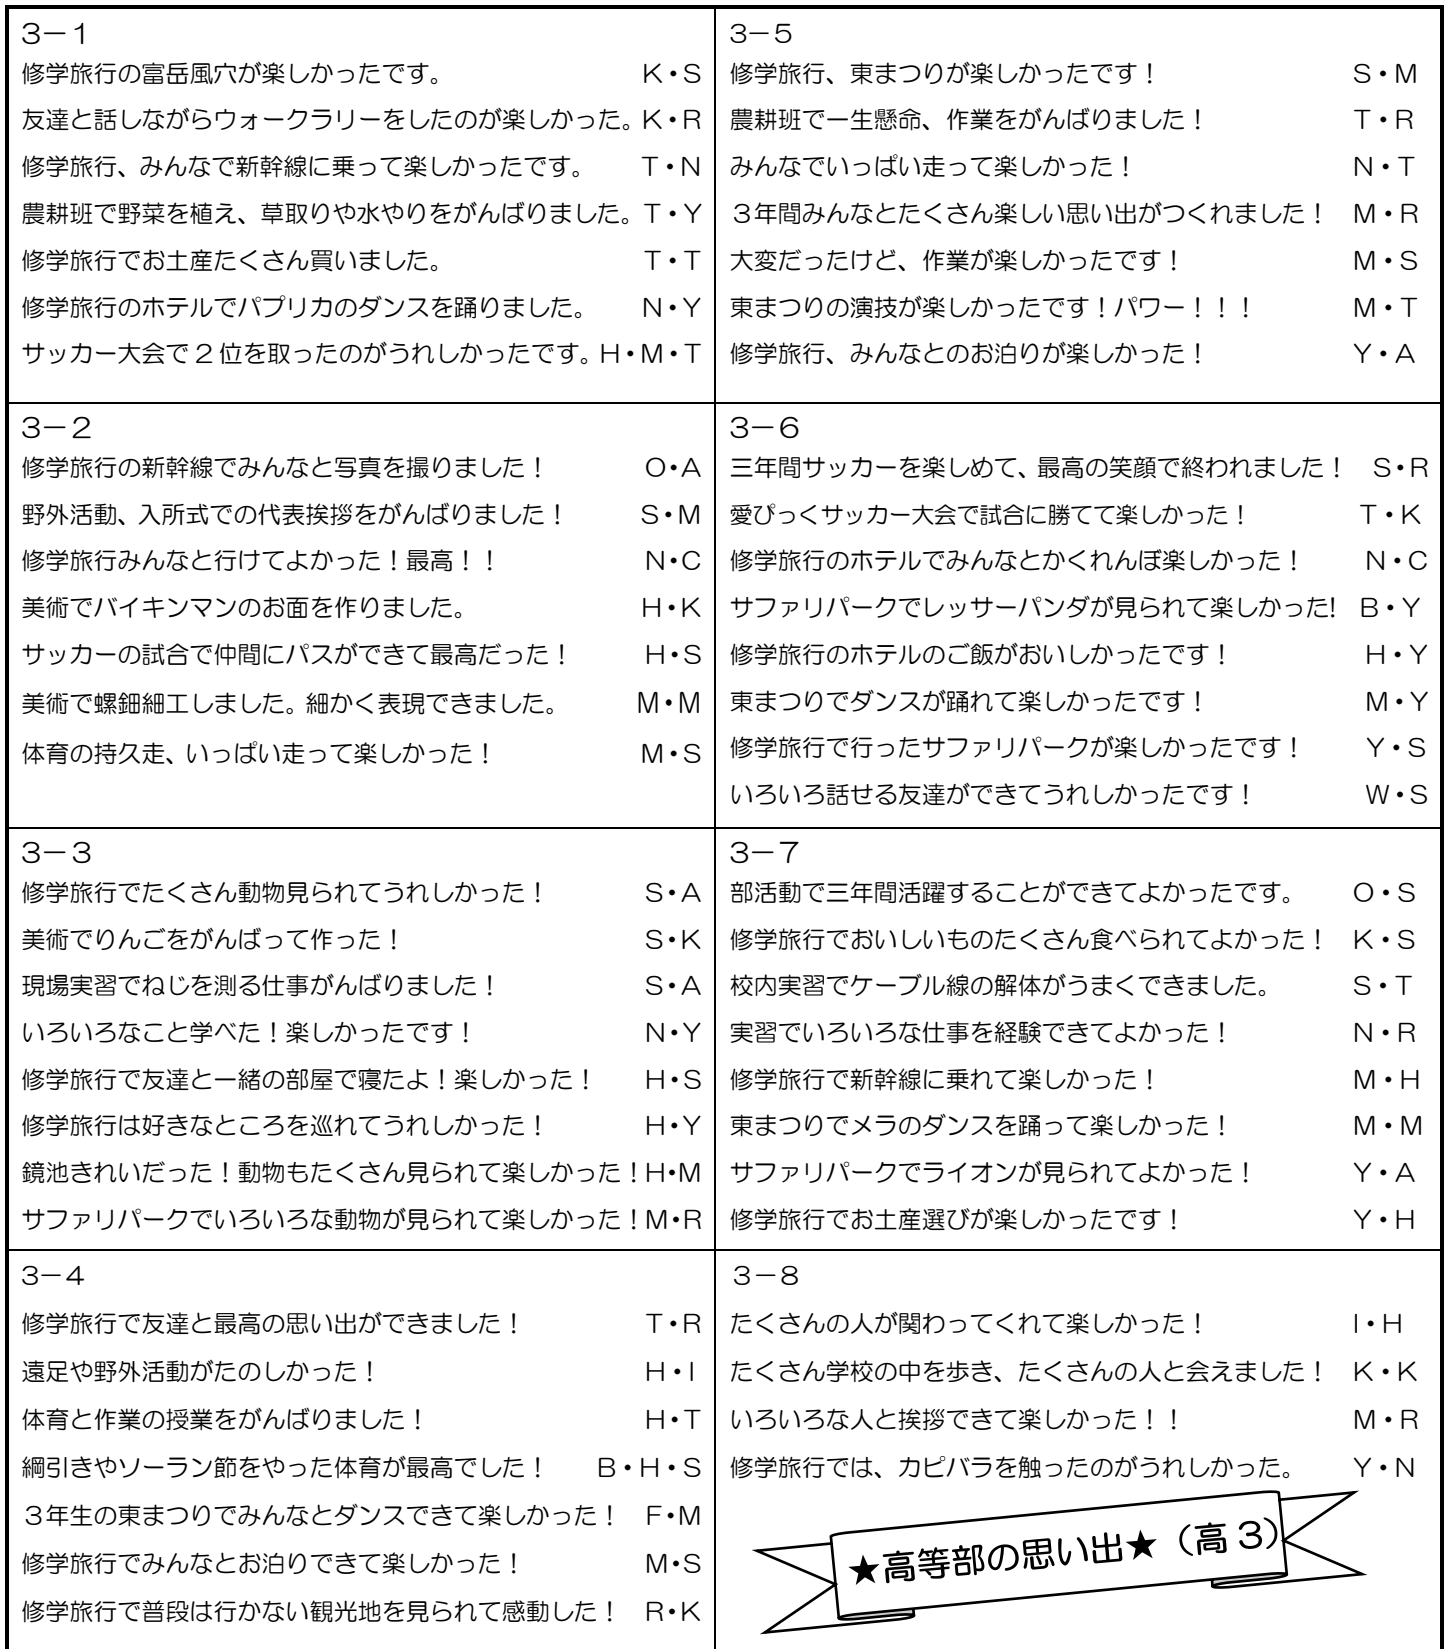 3－1
修学旅行の富岳風穴が楽しかったです。 K・S
友達と話しながらウォークラリーをしたのが楽しかった。K・R
修学旅行、みんなで新幹線に乗って楽しかったです。 T・N
農耕班で野菜を植え、草取りや水やりをがんばりました。T・Y
修学旅行でお土産たくさん買いました。 T・T
修学旅行のホテルでパプリカのダンスを踊りました。 N・Y
サッカー大会で2位を取ったのがうれしかったです。H・M・T
3－2
修学旅行の新幹線でみんなと写真を撮りました！ O・A
野外活動、入所式での代表挨拶をがんばりました！ S・M
修学旅行みんなと行けてよかった！最高！！ N・C
美術でバイキンマンのお面を作りました。 H・K
サッカーの試合で仲間にパスができて最高だった！ H・S
美術で螺鈿細工しました。細かく表現できました。 M・M
体育の持久走、いっぱい走って楽しかった！ M・S
3－3
修学旅行でたくさん動物見られてうれしかった！ S・A
美術でりんごをがんばって作った！ S・K
現場実習でねじを測る仕事がんばりました！ S・A
いろいろなこと学べた！楽しかったです！ N・Y
修学旅行で友達と一緒の部屋で寝たよ！楽しかった！ H・S
修学旅行は好きなところを巡れてうれしかった！ H・Y
鏡池きれいだった！動物もたくさん見られて楽しかった！H・M
サファリパークでいろいろな動物が見られて楽しかった！M・R
3－4
修学旅行で友達と最高の思い出ができました！ T・R
遠足や野外活動がたのしかった！ H・I
体育と作業の授業をがんばりました！ H・T
綱引きやソーラン節をやった体育が最高でした！ B・H・S
３年生の東まつりでみんなとダンスできて楽しかった！ F・M
修学旅行でみんなとお泊りできて楽しかった！ M・S
修学旅行で普段は行かない観光地を見られて感動した！ R・K
3－5
修学旅行、東まつりが楽しかったです！ S・M
農耕班で一生懸命、作業をがんばりました！ T・R
みんなでいっぱい走って楽しかった！ N・T
３年間みんなとたくさん楽しい思い出がつくれました！ M・R
大変だったけど、作業が楽しかったです！ M・S
東まつりの演技が楽しかったです！パワー！！！ M・T
修学旅行、みんなとのお泊りが楽しかった！ Y・A
3－6
三年間サッカーを楽しめて、最高の笑顔で終われました！ S・R
愛ぴっくサッカー大会で試合に勝てて楽しかった！ T・K
修学旅行のホテルでみんなとかくれんぼ楽しかった！ N・C
サファリパークでレッサーパンダが見られて楽しかった! B・Y
修学旅行のホテルのご飯がおいしかったです！ H・Y
東まつりでダンスが踊れて楽しかったです！ M・Y
修学旅行で行ったサファリパークが楽しかったです！ Y・S
いろいろ話せる友達ができてうれしかったです！ W・S
3－7
部活動で三年間活躍することができてよかったです。 O・S
修学旅行でおいしいものたくさん食べられてよかった！ K・S
校内実習でケーブル線の解体がうまくできました。 S・T
実習でいろいろな仕事を経験できてよかった！ N・R
修学旅行で新幹線に乗れて楽しかった！ M・H
東まつりでメラのダンスを踊って楽しかった！ M・M
サファリパークでライオンが見られてよかった！ Y・A
修学旅行でお土産選びが楽しかったです！ Y・H
3－8
たくさんの人が関わってくれて楽しかった！ I・H
たくさん学校の中を歩き、たくさんの人と会えました！ K・K
いろいろな人と挨拶できて楽しかった！！ M・R
修学旅行では、カピバラを触ったのがうれしかった。 Y・N
★高等部の思い出★（高3）